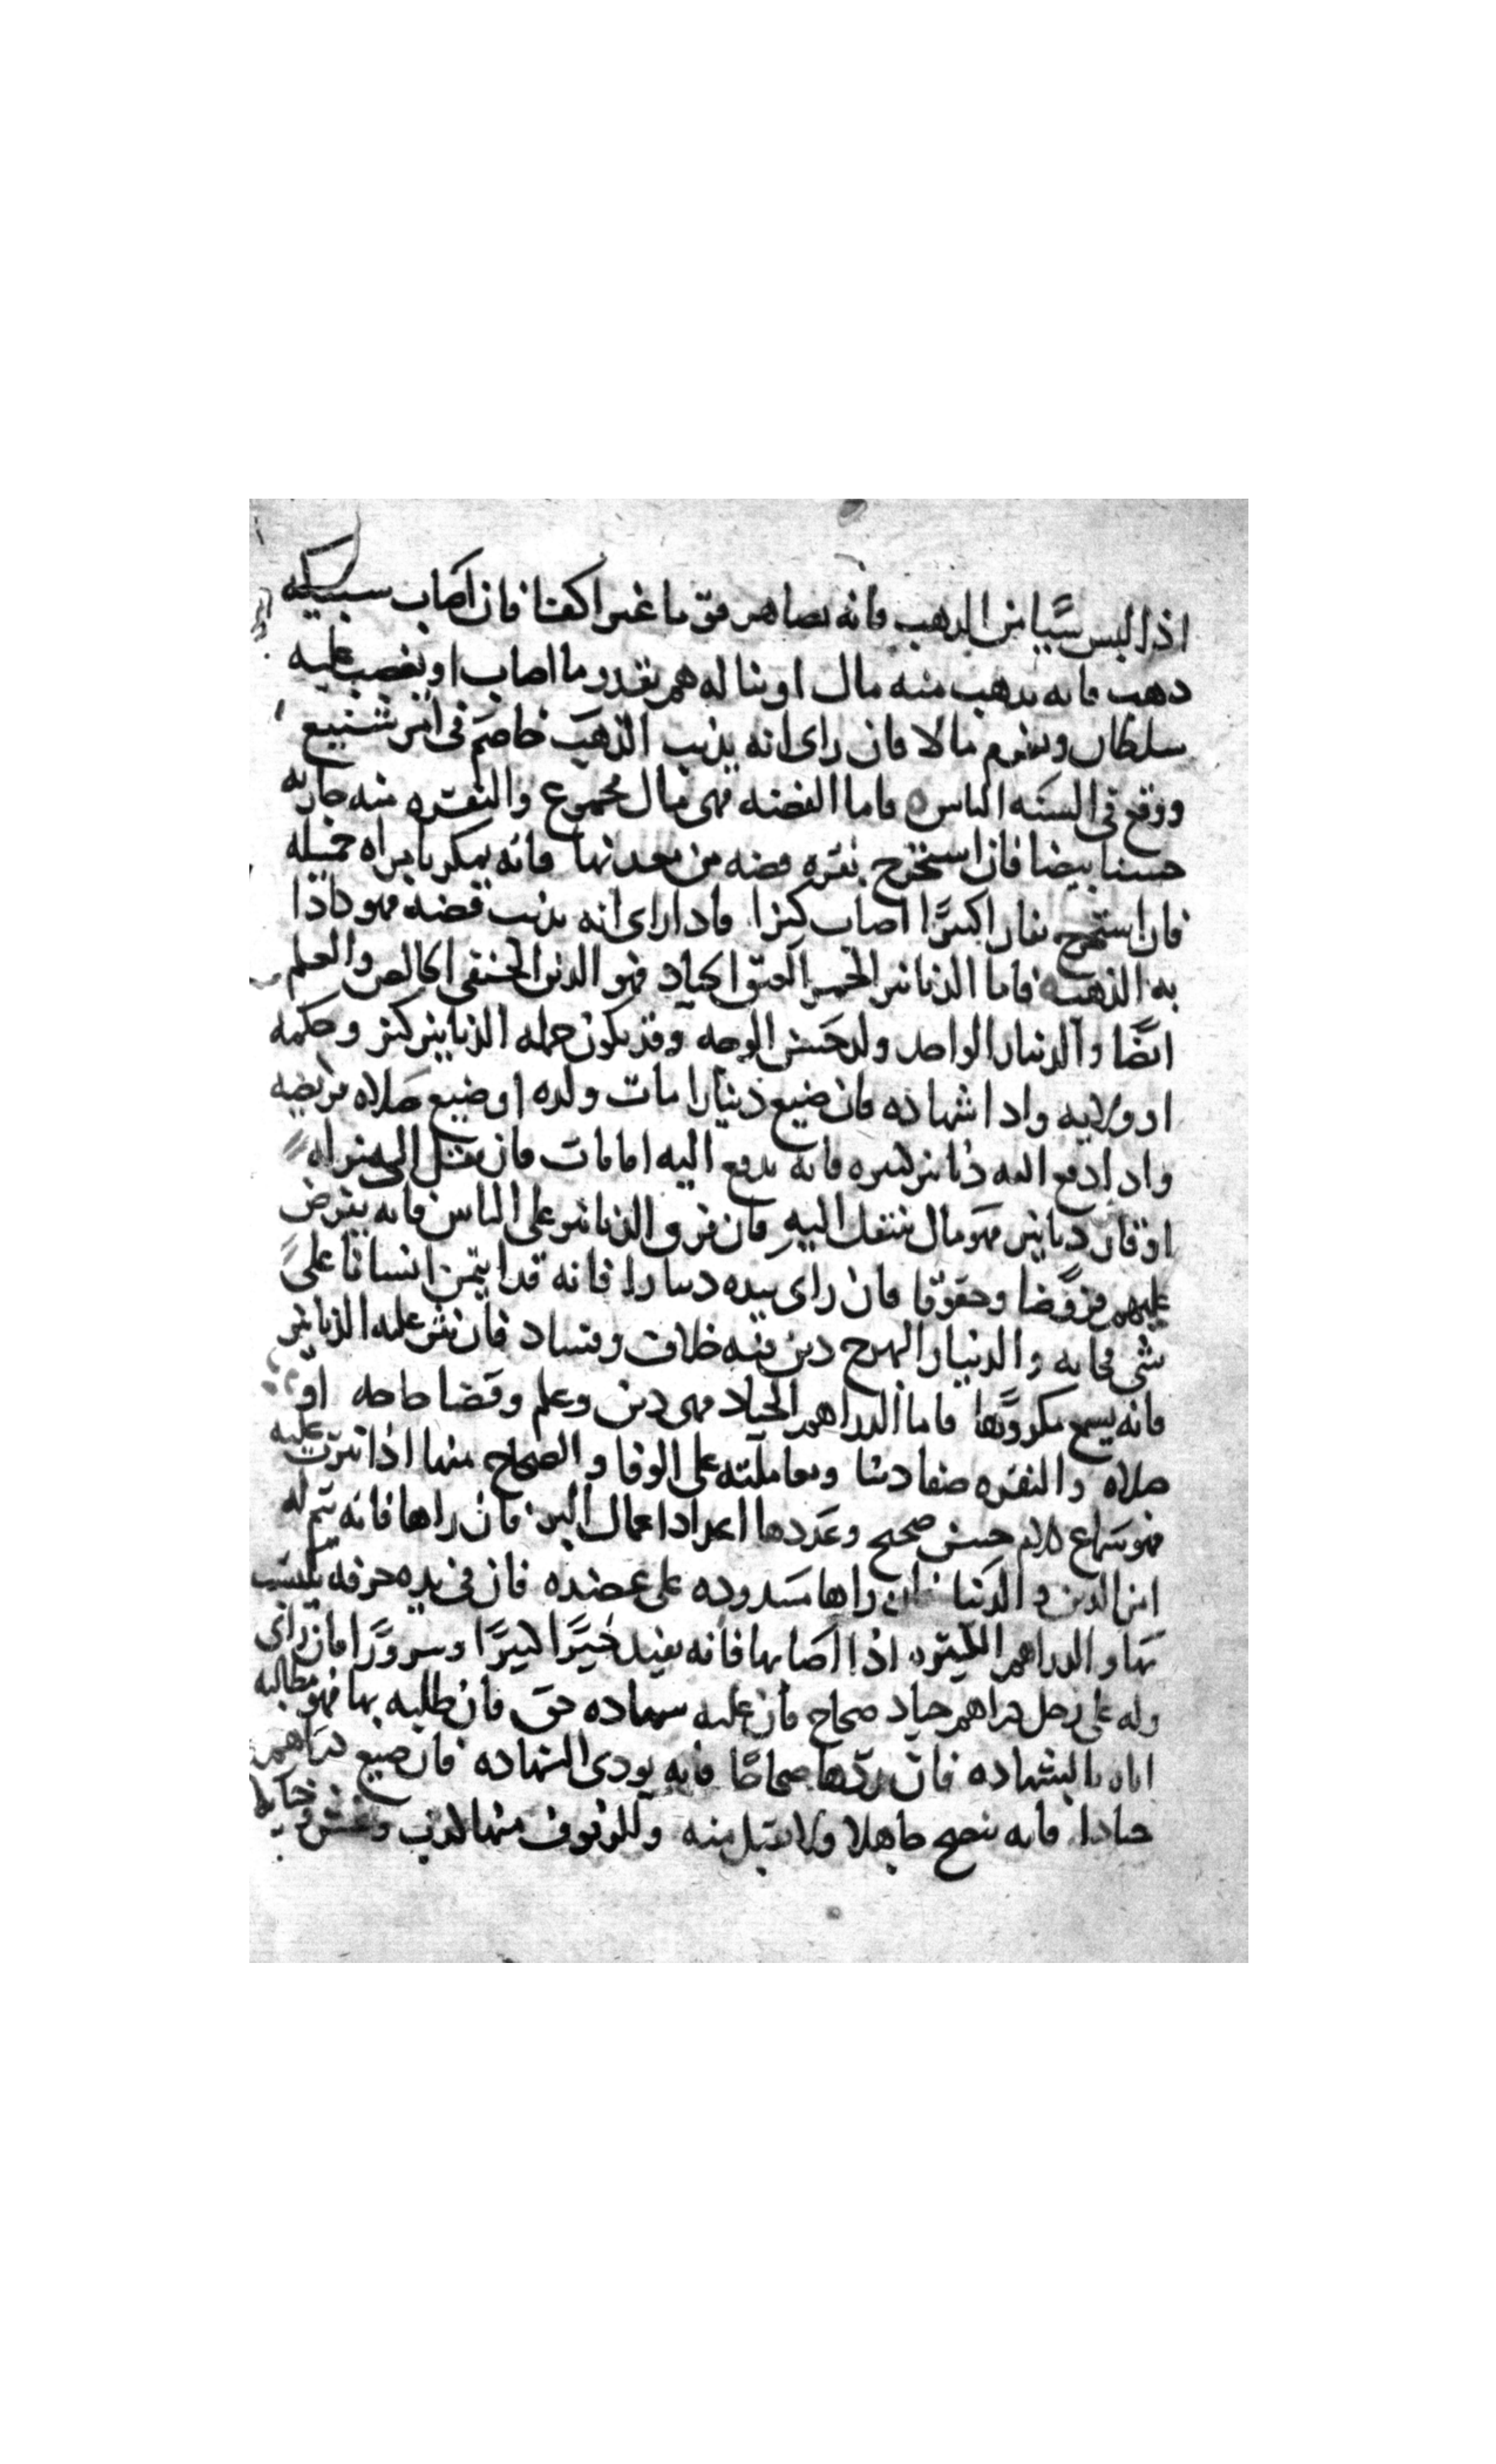 اذا لبس شيا من الذهب فانه يصاهر قوما غير اكفا فان اصاب سبيكه
ذهب فانه يذهب منه مال او يناله هم بقدر ما اصاب او يغضب عليه
سلطان ويغرم مالا فان راى انه يذيب الذهب خاصم فى امر شنيع
ووقع فى السنه الناس فاما الفضه فهى مال مجموع والنقره منه جاريه
حسنا بيضا فان استخرج نقره فضه من معدنها فانه يمكر بامراه جميله
فان استخرج نقارا كبيرا اصاب كنزا فاذا راى انه يذيب فضه فهو
به الذهب فاما الدنانير الحمر العتق الجياد فهو الدين الحنيفى الخالص والعلم
ايضا والدينار الواحد ولد حسن الوجه وقد يكون جمله الدنانير كنز وحكمه
او ولايه واداشهاده فان ضيع دينارا مات ولده او ضيع صلاه فريضه
واذا دفع اليه دنانير كثيره فانه يدفع اليه امانات فان نقل الى منزله
اوقار دنانير فهو مال ينتقل اليه فان فرق الدنانير على الناس فانه يفرض
عليهم فروضا وحقوقا فان راى بيده دينارا فانه قد ايتمن انسانا على
شى فخانه والدينار البهرج دين فيه خلاف وفساد فان نثر عليه الدنانير
فانه يسمع مكروها فاما الدراهم الجياد فهى دين وعلم وقضا حاجه او
صلاه والنقره صفا دينا ومعاملته على الوفا والصحاح منها اذا نثرت عليه
فهو سماع كلام حسن صحيح وعددها اعداد اعمال البر فان راها فانه يتم له
امر الدين والدنيا فان راها مشدوده على عضده فان فى يده حرفه يكتسب
بها والدراهم اذا اصابها فانه يفيد خيرا كثيرا وسرورا فان راى
وله على رجل دراهم جياد صحاح فان عليه شهاده حق فان طلبه بها فهو مطالبه
اياه بالشهاده فان ردها صحاحا فانه يودى الشهاده فان ضيع دراهم
جيادا فانه ينصح جاهلا ولا يقبل منه والزيوف منها كذب وغش